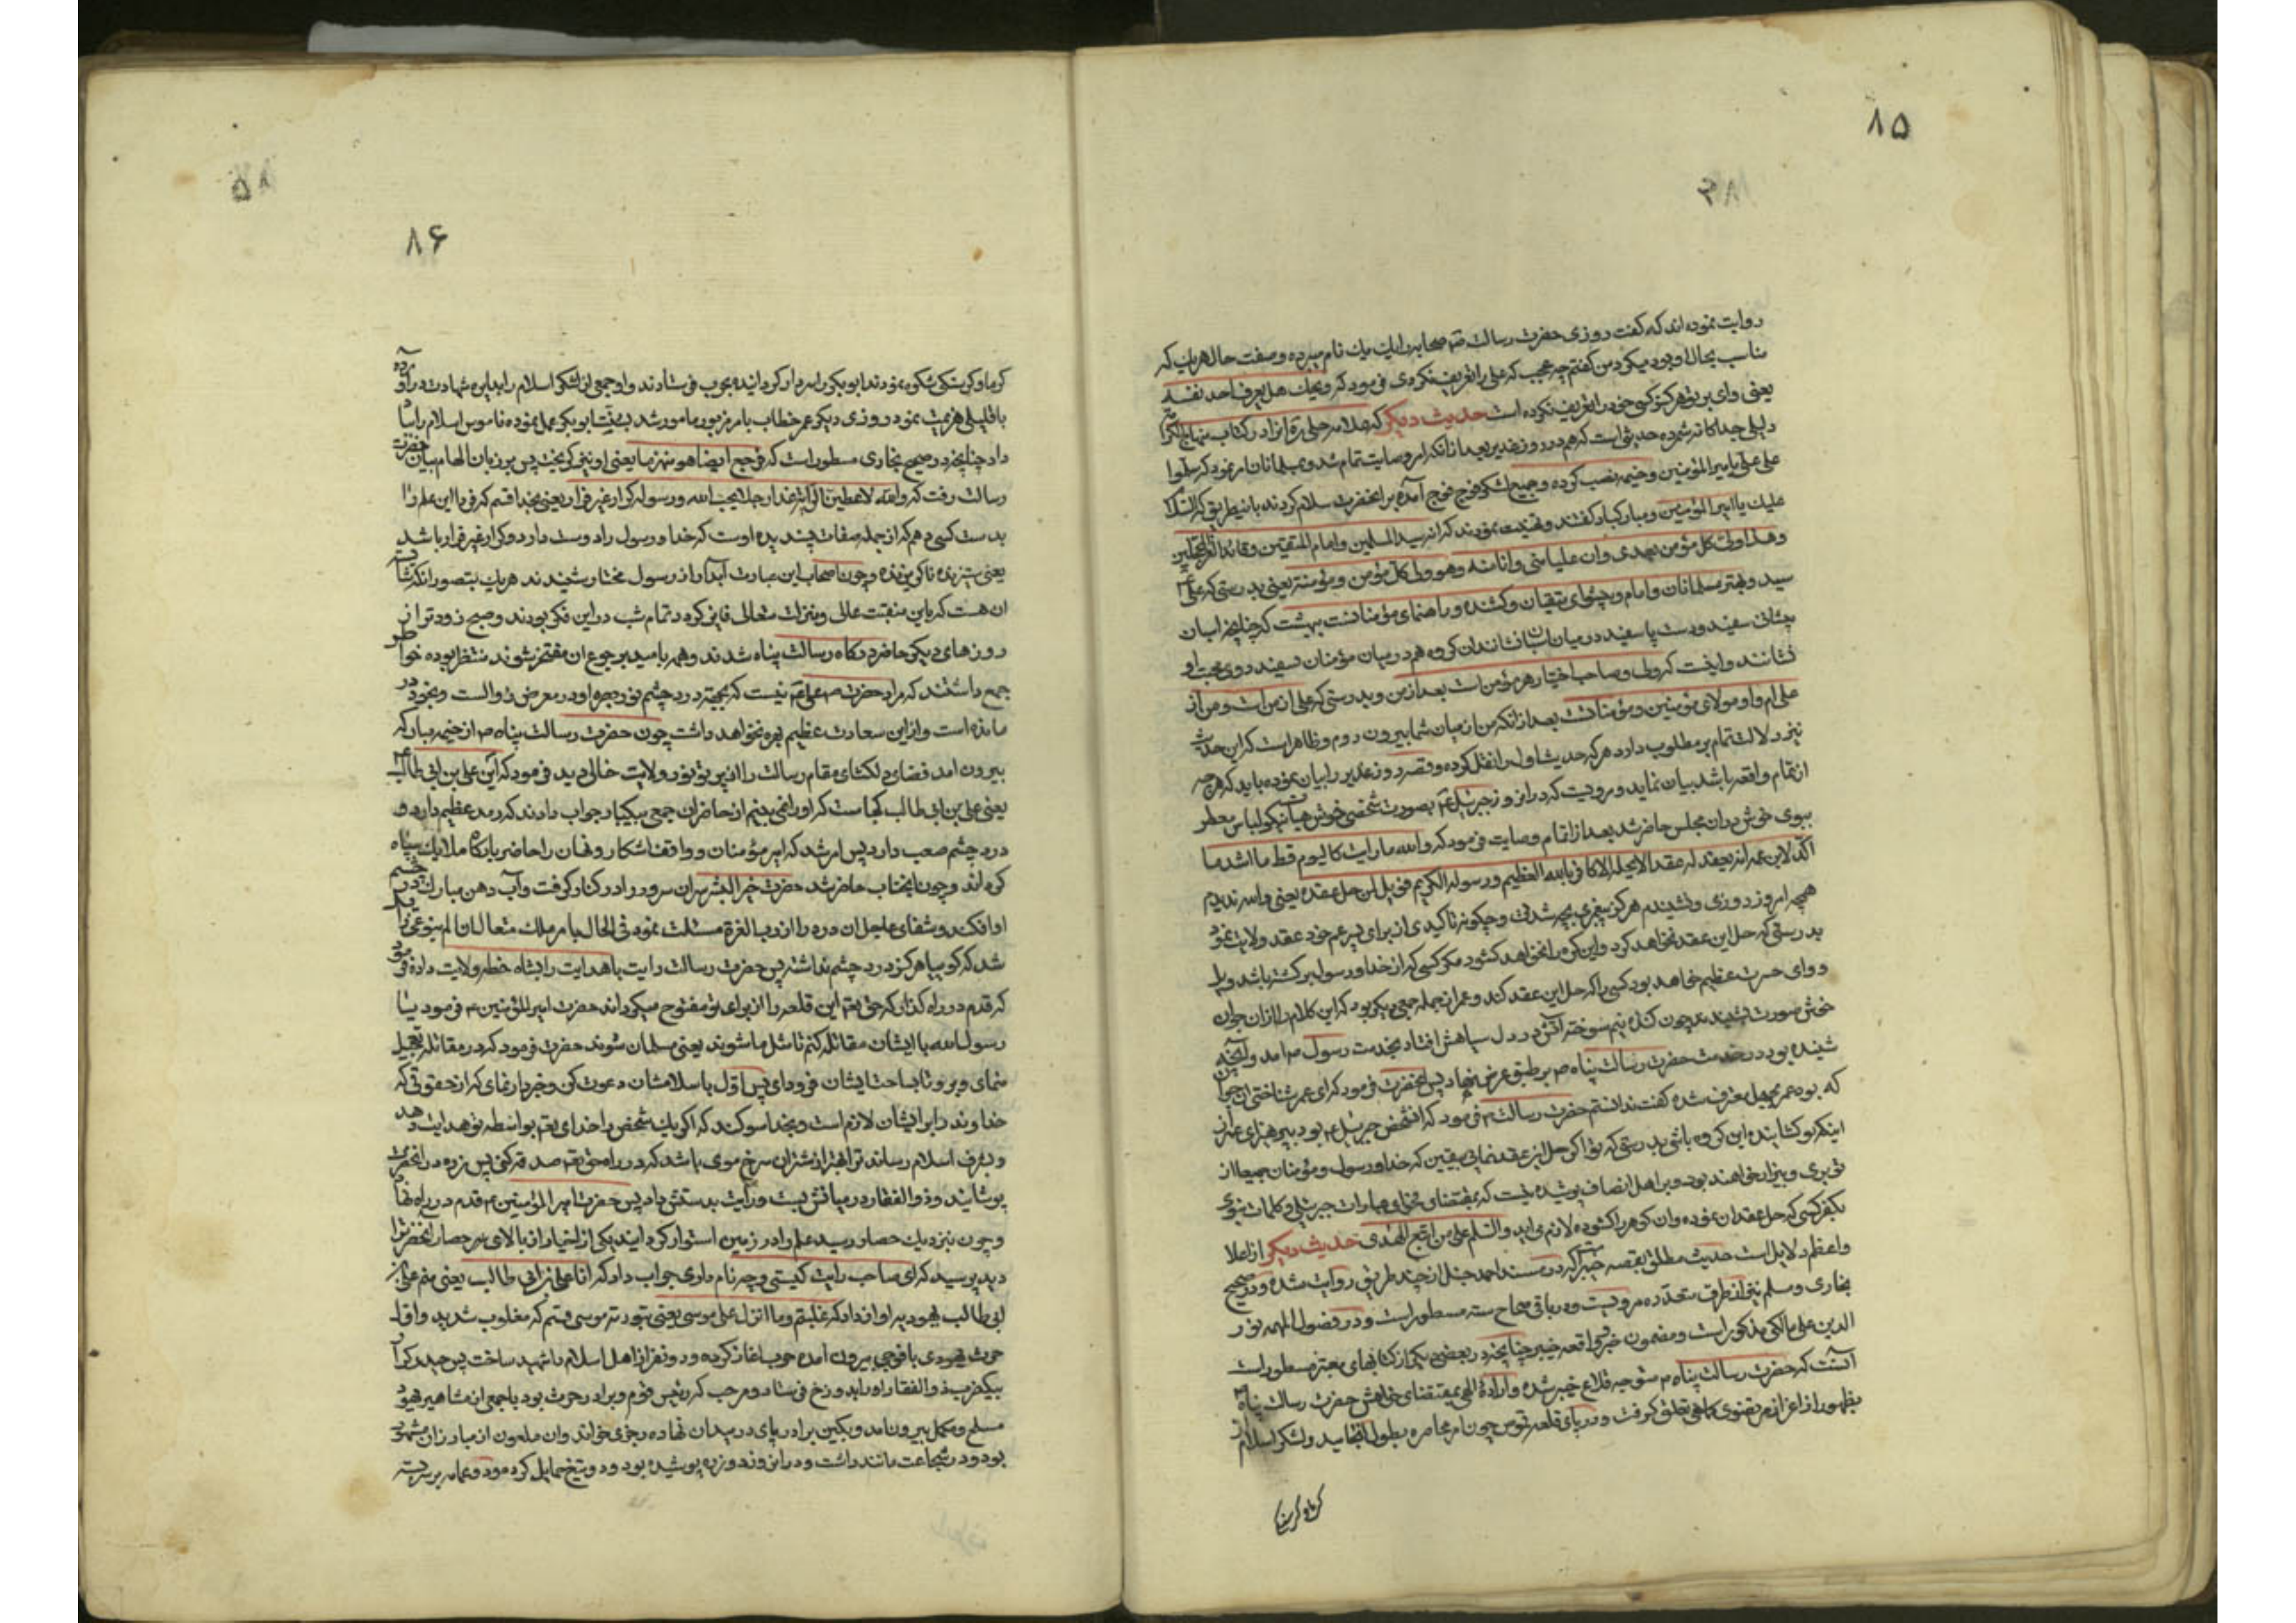 ۸۵
روایت نموده اند که گفت روزی حضرت رسالت صحابه را یک یک نام میبرد و صفت حال هریک که
مناسب بحال او بود میکرد من گفتم چه عجب که علی را تعریف نکردی فرمود که ویحک هل یعرف احد نفسه
یعنی وای بر تو هرگز کسی خود را تعریف نکرده است حدیث دیگر که علامه حلی ره آنرا در کتاب منهاج الکرا
دلیلی جداگانه شمرده حدیثی است که هم در روز غدیر بعد از آنکه امر وصایت تمام شد و بمسلمانان امر نمود که سلموا
علی علی بامیر المؤمنین و خیمه نصب کرده و جمیع لشکر فوج فوج آمده بر آنحضرت سلام کردند باینطریق که السلام
علیک یا امیر المؤمنین و مبارکباد گفتند و تهنیت نمودند که انه سید المسلمین و امام المتقین و قائد الغر المحجلین
و هذا ولی کل مؤمن بعدی و ان علیا منی و انا منه و هو ولی کل مؤمن و مؤمنة یعنی بدرستی که علی
سید و بهتر مسلمانان و امام و پیشوای متقیان و کشنده و راهنمای مؤمنانست ببهشت که چنانچه اسبان
پیشانی سفید و دست پا سفید در میان اسبان نشاندان گروه هم در میان مؤمنان بسفید روی محبت او
نشانند و اینست که ولی و صاحب اختیار هر مؤمن است بعد از من و بدرستی که علی از من است و من از
علی ام و او مولای مؤمنین و مؤمنات است بعد از آنکه من از میان شما بیرون روم و ظاهر است که این حدیث
نیز دلالت تمام بر مطلوب دارد هر که حدیث اول را نقل کرده و قصه روز غدیر را بیان نموده باید که هرچه
از تمام واقعه باشد بیان نماید و مرویست که در آنروز جبرئیل بصورت شخصی خوش هیأت نیکو لباس معطر
ببوی خوش در ان مجلس حاضر شد بعد از اتمام وصایت فرمود که والله ما رایت کالیوم قط ما اشد ما
اکد لابن عمه انه یعقد له عقد الا یحله الا کافر بالله العظیم و رسوله الکریم فویل لمن حل عقده یعنی والله ندیدم
همچه امروز روزی و نشنیدم هرگز پیغمبری بچه شدت و چگونه تاکیدی از برای پسر عم خود عقد ولایت نمود
بدرستی که حل این عقد نخواهد کرد و این گره را نخواهد گشود مگر کسی که از خدا و رسول برگشته باشد ویل
و وای حسرت عظیم خواهد بود کسی را که حل این عقد کند و عمر از جمله جمعی دیگر بود که این کلام را از آن جوان
خوش صورت شنیدند چون کنده نیم سوخته آتش در دل سیاهش افتاد بخدمت رسول امد و آنچه
شنیده بود در خدمت حضرت رسالت پناه بر طبق عرض نهاد پس آنحضرت فرمود که ای عمر شناختی آن جوان
که بود عمر بجهل معترف شده گفت ندانستم حضرت رسالت فرمود که آن شخص جبرئیل بود بپرهیز ای عمر از
اینکه تو گشاینده این گره باشی بدرستی که تو اگر حل این عقد نمایی بیقین که خدا و رسول و مؤمنان جمیعا از
تو بری و بیزار خواهند بود و بر اهل انصاف پوشیده نیست که بمقتضای فحوای عبارات جبرئیلی و کلمات نبوی
بکفر کسی که حل عقد ان نموده و ان گره را گشوده لازم می اید و السلم علی من اتبع الهدی حدیث دیگر از اعلا
و اعظم دلایل است حدیث مطلق بقصه خیبر که در مسند احمد حنبل از چند طریق روایت شده و در صحیح
بخاری و مسلم نیز از طرف متعدده مرویست و در باقی صحاح سته مسطور است و در فصول المهمه نور
الدین علی مالکی مذکور است و مضمون خبر واقعه خیبر چنانچه در بعضی دیگر از کتابهای معتبر مسطور است
آنست که حضرت رسالت پناه متوجه قلاع خیبر شده و اراده الهی بمقتضای خواهش حضرت رسالت پناه
بظهور از اعزاز مرتضوی کماهی تعلق گرفت و در پای قلعه قموس چون امر محاصره بطول انجامید و لشکر اسلام از
۸۶
گرما و گرسنگی شکوه نمودند ابوبکر را سردار گردانیده بحرب فرستادند و او جمعی از لشکر اسلام را بدایره شهادت درآورده
با قلیلی هزیمت نمود روزی دیگر عمر خطاب بامر مزبور مامور شد بسنت ابوبکر عمل نموده ناموس اسلام را بباد
داد چنانچه در صحیح بخاری مسطور است که فرجع ایضا هو منهزما یعنی او نیز گریخت پس بر زبان الهام بیان حضرت
رسالت رفت که والله لاعطین الرایة غدا رجلا یحب الله و رسوله کرار غیر فرار یعنی بخدا قسم که فردا این علم را
بدست کسی دهم که از جمله صفات پسندیده اوست که خدا و رسول را دوست دارد و کرار غیر فرار باشد
یعنی ستیزنده نا گریزنده و چون اصحاب این عبارت آبدار از رسول مختار شنیدند هریک بتصور انکه شاید
ان هست که باین منقبت عالی و منزلت متعالی فایز گردد تمام شب در این فکر بودند و صبح زودتر از
روزهای دیگر حاضر درگاه رسالت پناه شدند و همه بامید برجوع ان مفتخر شوند منتظر بوده خواطر
جمع داشتند که مراد حضرت علی نیست که بجهة درد چشم نور بصره او در معرض زوالست و بخود در
مانده است و از این سعادت عظیم بهره نخواهد داشت چون حضرت رسالت پناه از خیمه مبارکه
بیرون امد فضای دلکشای مقام رسالت را از پرتو نور ولایت خالی دید فرمود که این علی بن ابی طالب
یعنی علی بن ابی طالب کجاست که او را نمی بینم از حاضران جمعی بیکبار جواب دادند که رمد عظیم دارد و
درد چشم صعب دارد پس امر شد که امیر مؤمنان و واقف اشکار و نهان را حاضر بارگاه ملایک سپاه
کرده اند و چون انجناب حاضر شد حضرت خیر البشر سر ان سرور را در کنار گرفت و آب دهن مبارک در چشم
او افکند و شفای عاجل ان درد را از رب العزة مسئلت نمود فی الحال بامر ملک متعال ان الم بنوعی زایل
شد که گویا هرگز درد چشم نداشته پس حضرت رسالت رایت با هدایت را بشاه خطه ولایت داده فرمود
که قدم در راه گذار که حق تع این قلعه را از برای تو مفتوح میگرداند حضرت امیر المؤمنین فرمود یا
رسول الله با ایشان مقاتله کنم تا مثل ما شوند یعنی مسلمان شوند حضرت فرمود که در مقاتله تعجیل
منمای و برو تا بساحت ایشان فرود ای پس اول باسلامشان دعوت کن و خبردار نمای که از حقوقی که
خداوند را بر ایشان لازم است و بخدا سوگند که اگر یک شخص را خدای تع بواسطه تو هدایت دهد
و بشرف اسلام رساند ترا بهتر از شتران سرخ موی باشد که در راه حق تع صدقه کنی پس زره در انحضرت
پوشانید و ذو الفقار در میانش بست و رایت بدستش داد پس حضرت امیر المؤمنین قدم در راه نهاد
و چون نزدیک حصار رسید علم را در زمین استوار گردانید یکی از احبار از بالای سر حصار انحضرت را
دید پرسید که ای صاحب رایت کیستی و چه نام داری جواب داد که انا علی بن ابی طالب یعنی منم علی بن
ابی طالب یهود به او از داد که غلبتم و ما انزل علی موسی یعنی بتوریة موسی قسم که مغلوب شدید و اول
حرث یهودی با فوجی بیرون امده حرب اغاز کرده و دو نفر از اهل اسلام را شهید ساخت پس حیدر کرار
بیکضرب ذو الفقار او را بدوزخ فرستاد و مرحب که رئیس قوم و برادر حرث بود با جمعی از مشاهیر یهود
مسلح و مکمل بیرون امد و بکین برادر پای در میدان نهاده رجزی خواند و ان ملعون از مبارزان مشهور
بود و در شجاعت مانند داشت و در انروز دو زره پوشیده بود و دو تیغ حمایل کرده بود و عمامه بر سر بسته